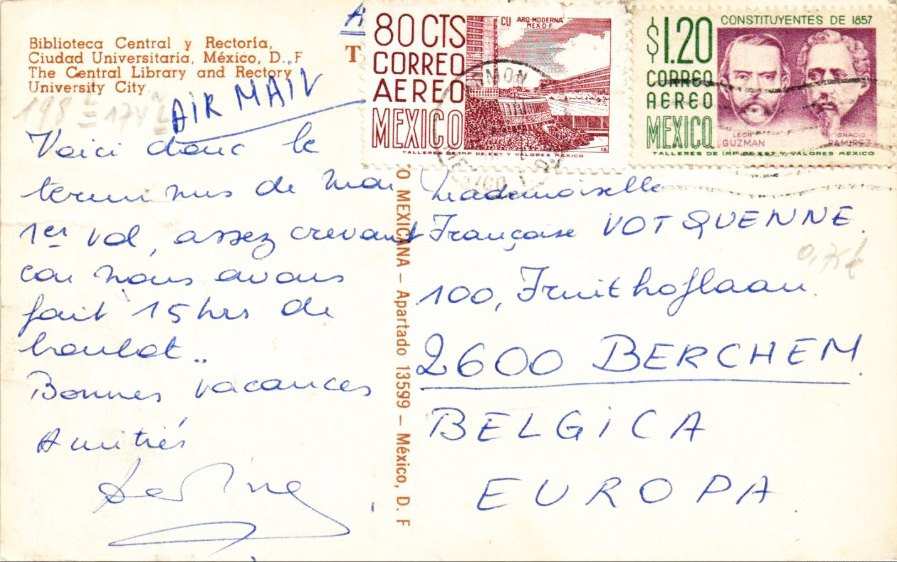 Biblioteca Central y Rectoría,
Ciudad Universitaria, México, D. F
The Central Library and Rectory
University City
AIR MAIL
80 CTS
CORREO
AEREO
MEXICO
CU ARQ MODERNA
MEX D F
TALLERES DE IMP DE EST Y VALORES MEXICO
$1.20
CONSTITUYENTES DE 1857
CORREO
AEREO
MEXICO
LEON
GUZMAN
IGNACIO
RAMIREZ
TALLERES DE IMP DE EST Y VALORES MEXICO
Voici donc le
terminus de mon
1er vol, assez crevant
car nous avons
fait 15 hrs de
boulot..
Bonnes vacances
Amitiés
O MEXICANA – Apartado 13599 – México, D. F
Mademoiselle
Françoise VOTQUENNE.
100, Fruithoflaan.
2600 BERCHEM.
BELGICA
EUROPA